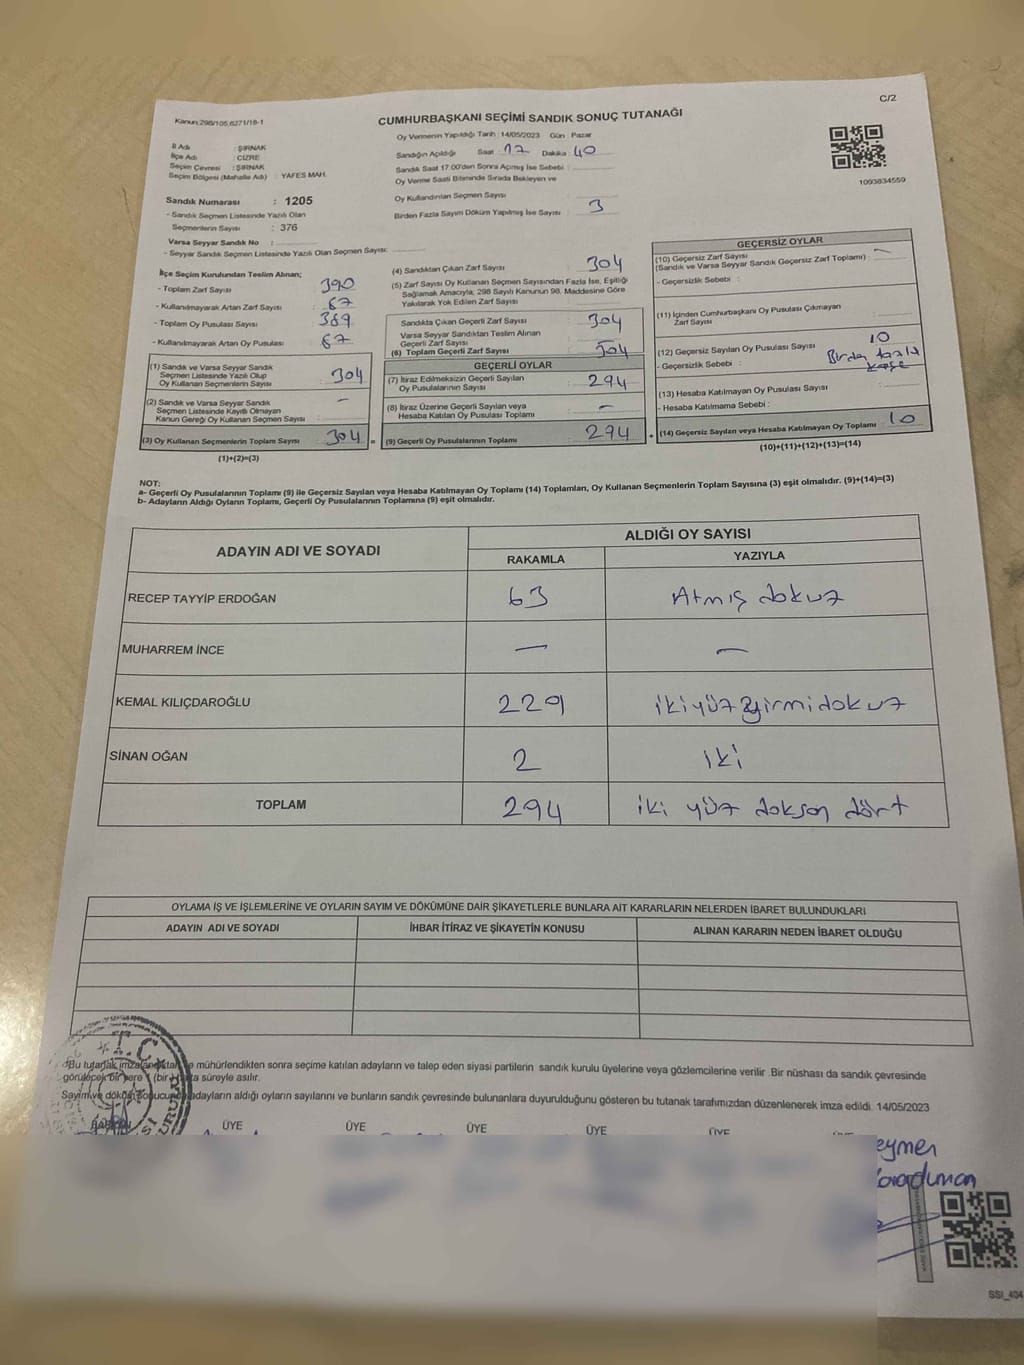 C/2
Kanun;298/105,6271/18-1
CUMHURBAŞKANI SEÇİMİ SANDIK SONUÇ TUTANAĞI
Oy Vermenin Yapıldığı Tarih : 14/05/2023 Gün : Pazar
İl Adı : ŞIRNAK
İlçe Adı : CİZRE
Seçim Çevresi : ŞIRNAK
Seçim Bölgesi (Mahalle Adı) : YAFES MAH.
Sandığın Açıldığı Saat 17 Dakika 40
Sandık Saat 17:00'den Sonra Açılmış İse Sebebi :
Oy Verme Saati Bitiminde Sırada Bekleyen ve
Oy Kullandırılan Seçmen Sayısı
Birden Fazla Sayım Döküm Yapılmış İse Sayısı : 3
1093834559
Sandık Numarası : 1205
- Sandık Seçmen Listesinde Yazılı Olan
Seçmenlerin Sayısı : 376
Varsa Seyyar Sandık No :
- Seyyar Sandık Seçmen Listesinde Yazılı Olan Seçmen Sayısı:
İlçe Seçim Kurulundan Teslim Alınan;
- Toplam Zarf Sayısı : 390
- Kullanılmayarak Artan Zarf Sayısı : 67
- Toplam Oy Pusulası Sayısı : 389
- Kullanılmayarak Artan Oy Pusulası : 67
(1) Sandık ve Varsa Seyyar Sandık
Seçmen Listesinde Yazılı Olup
Oy Kullanan Seçmenlerin Sayısı : 304
(2) Sandık ve Varsa Seyyar Sandık
Seçmen Listesinde Kayıtlı Olmayan
Kanun Gereği Oy Kullanan Seçmen Sayısı : –
(3) Oy Kullanan Seçmenlerin Toplam Sayısı : 304 =
(1)+(2)=(3)
(4) Sandıktan Çıkan Zarf Sayısı : 304
(5) Zarf Sayısı Oy Kullanan Seçmen Sayısından Fazla İse, Eşitliği
Sağlamak Amacıyla; 298 Sayılı Kanunun 98. Maddesine Göre
Yakılarak Yok Edilen Zarf Sayısı :
Sandıkta Çıkan Geçerli Zarf Sayısı : 304
Varsa Seyyar Sandıktan Teslim Alınan
Geçerli Zarf Sayısı :
(6) Toplam Geçerli Zarf Sayısı : 304
GEÇERLİ OYLAR
(7) İtiraz Edilmeksizin Geçerli Sayılan
Oy Pusulalarının Sayısı : 294
(8) İtiraz Üzerine Geçerli Sayılan veya
Hesaba Katılan Oy Pusulası Toplamı : –
(9) Geçerli Oy Pusulalarının Toplamı : 294 +
GEÇERSİZ OYLAR
(10) Geçersiz Zarf Sayısı
(Sandık ve Varsa Seyyar Sandık Geçersiz Zarf Toplamı) : –
- Geçersizlik Sebebi :
(11) İçinden Cumhurbaşkanı Oy Pusulası Çıkmayan
Zarf Sayısı :
(12) Geçersiz Sayılan Oy Pusulası Sayısı : 10
- Geçersizlik Sebebi : Birden fazla
kaşe
(13) Hesaba Katılmayan Oy Pusulası Sayısı :
- Hesaba Katılmama Sebebi :
(14) Geçersiz Sayılan veya Hesaba Katılmayan Oy Toplamı : 10
(10)+(11)+(12)+(13)=(14)
NOT:
a- Geçerli Oy Pusulalarının Toplamı (9) ile Geçersiz Sayılan veya Hesaba Katılmayan Oy Toplamı (14) Toplamları, Oy Kullanan Seçmenlerin Toplam Sayısına (3) eşit olmalıdır. (9)+(14)=(3)
b- Adayların Aldığı Oyların Toplamı, Geçerli Oy Pusulalarının Toplamına (9) eşit olmalıdır.
ADAYIN ADI VE SOYADI
ALDIĞI OY SAYISI
RAKAMLA YAZIYLA
RECEP TAYYİP ERDOĞAN 63 Atmış dokuz
MUHARREM İNCE – –
KEMAL KILIÇDAROĞLU 229 ikiyüz yirmidokuz
SİNAN OĞAN 2 iki
TOPLAM 294 iki yüz doksan dört
OYLAMA İŞ VE İŞLEMLERİNE VE OYLARIN SAYIM VE DÖKÜMÜNE DAİR ŞİKAYETLERLE BUNLARA AİT KARARLARIN NELERDEN İBARET BULUNDUKLARI
ADAYIN ADI VE SOYADI İHBAR İTİRAZ VE ŞİKAYETİN KONUSU ALINAN KARARIN NEDEN İBARET OLDUĞU
T.C.
Bu tutanak mühürlendikten sonra seçime katılan adayların ve talep eden siyasi partilerin sandık kurulu üyelerine veya gözlemcilerine verilir. Bir nüshası da sandık çevresinde
görülecek bir yere 1 (bir) süreyle asılır.
Sayım ve döküm sonucunda adayların aldığı oyların sayılarını ve bunların sandık çevresinde bulunanlara duyurulduğunu gösteren bu tutanak tarafımızdan düzenlenerek imza edildi. 14/05/2023
BAŞKAN ÜYE ÜYE ÜYE ÜYE ÜYE
SSI_404